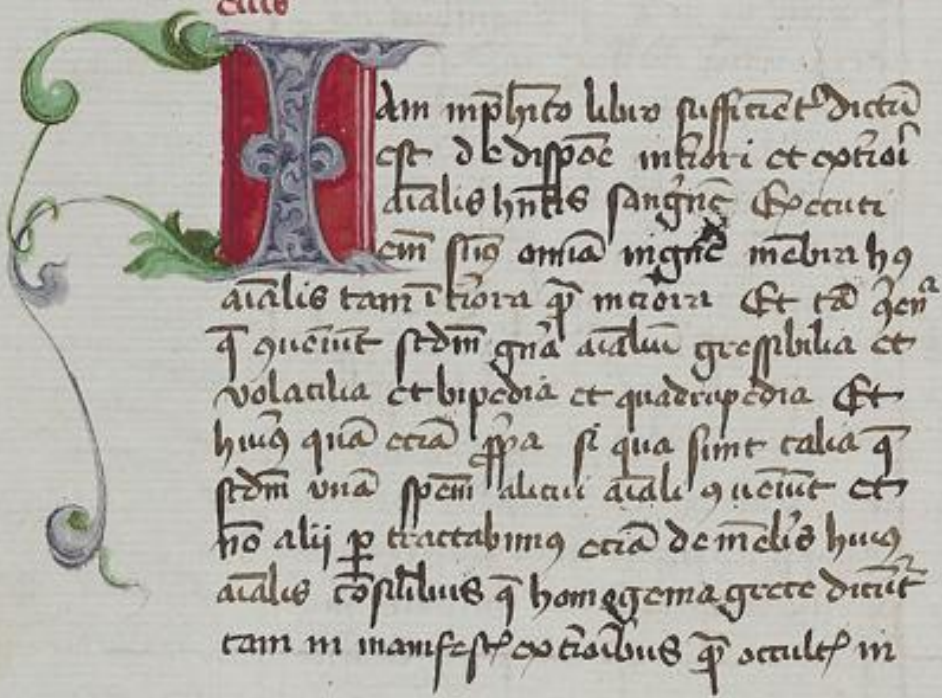 Iam in p̄hito libro sufficient᷑ dictū
est de dispoē int̄iori et ext̄iori
aīalis hn̄tis sangn̄ē Executi
em̄ sūꝰ omīa membra hꝰ
aīalis tam īt̄iora qᷓ Et
q̄ ꝯueīut scdm̄ gn̄a aīaliū gressibilia et
volatilia et bipedia et quadrupedia Et
huiꝰ quā eciā ꝓp̄a si qua sunt talia q̄
scdm̄ vnā spēm alicui aīali ꝯueīut et
nō alij ꝑtractabimꝰ eciā de mēbr̄is huiꝰ
aīalis cōsil̄ibus q̄ homogenia grece dicūt᷑
tam in manifestꝭ ext̄ioībus qᷓ occultꝭ in